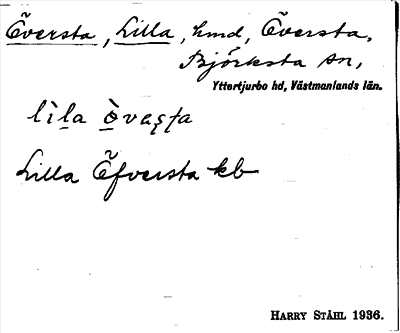 Översta, Lilla, hmd, Översta,
Björksta sn,
Yttertjurbo hd, Västmanlands län.
lìla
Lilla Öfversta kb
HARRY STÅHL 1936.